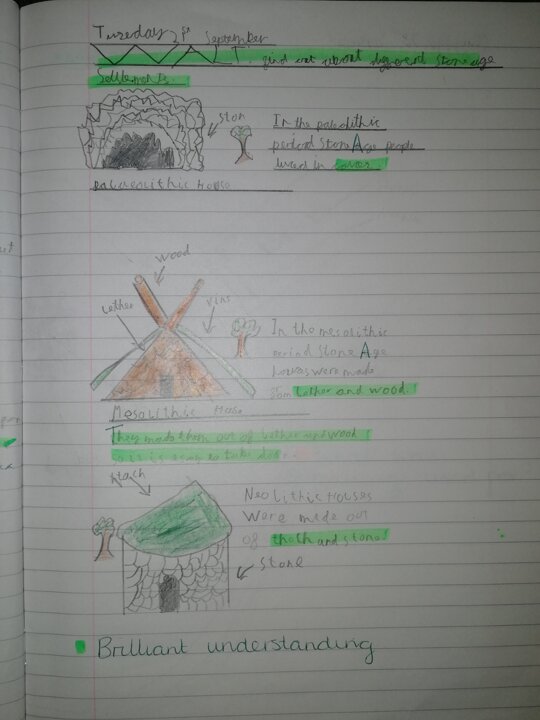 Tuesday September
find out about different Stone age
Settlements.
Ston
In the paleolithic
period Stone Age people
lived in caves.
palaeolithic House
wood
Lether
vins
In the mesolithic
period Stone Age
houses were made
from Lether and wood.
Mesolithic House
They made them out of Lether and wood
so it is easy to take down.
thach
Neolithic Houses
Were made out
of thach and stone!
Stone
Brilliant understanding